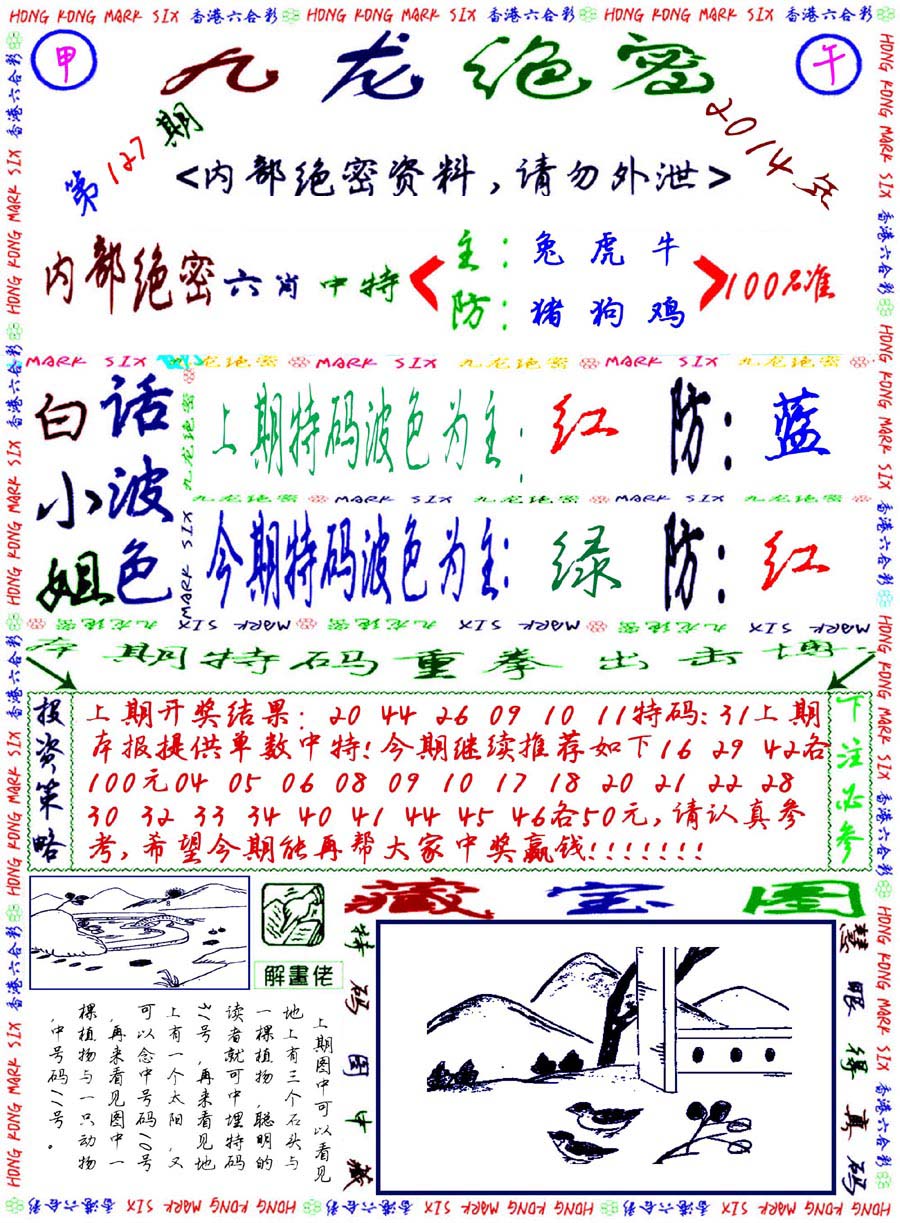 HONG KONG MARK SIX 香港六合彩 HONG KONG MARK SIX 香港六合彩 HONG KONG MARK SIX 香港六合彩
甲
九龙绝密
午
第127期
2014年
<内部绝密资料,请勿外泄>
内部绝密六肖中特
主:兔虎牛
防:猪狗鸡
100%准
MARK SIX 九龙绝密 MARK SIX 九龙绝密 MARK SIX 九龙绝密
白话
小波
姐色
上期特码波色为主:红 防:蓝
九龙绝密 MARK SIX 九龙绝密 MARK SIX 九龙绝密
今期特码波色为主:绿 防:红
九龙绝密 MARK SIX 九龙绝密 MARK SIX 九龙绝密 MARK SIX
本期特码重拳出击博
投资策略
上期开奖结果:20 44 26 09 10 11特码:31上期
本报提供单数中特!今期继续推荐如下16 29 42各
100元04 05 06 08 09 10 17 18 20 21 22 28
30 32 33 34 40 41 44 45 46各50元,请认真参
考,希望今期能再帮大家中奖赢钱!!!!!!!
下注必参
藏宝图
解畫佬
特码图中藏
慧眼得真码
上期图中可以看见
地上有三个石头与
一棵植物,聪明的
读者就可中埋特码
31号,再来看见地
上有一个太阳,又
可以念中号码10号
,再来看见图中一
棵植物与一只动物
,中号码11号。